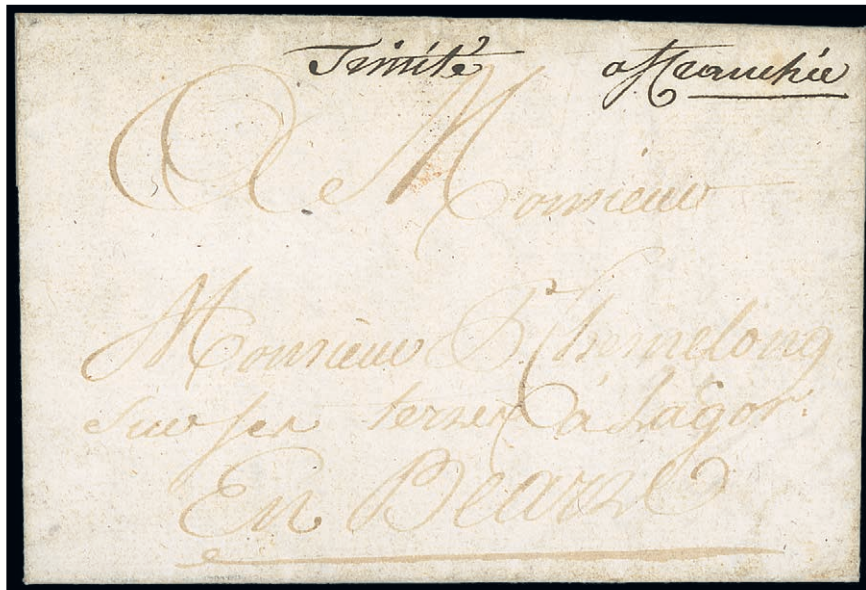 Trinité affranchie
A Monsieur
Monsieur Chemelong
sur ses terres à Lagor.
En Bearn